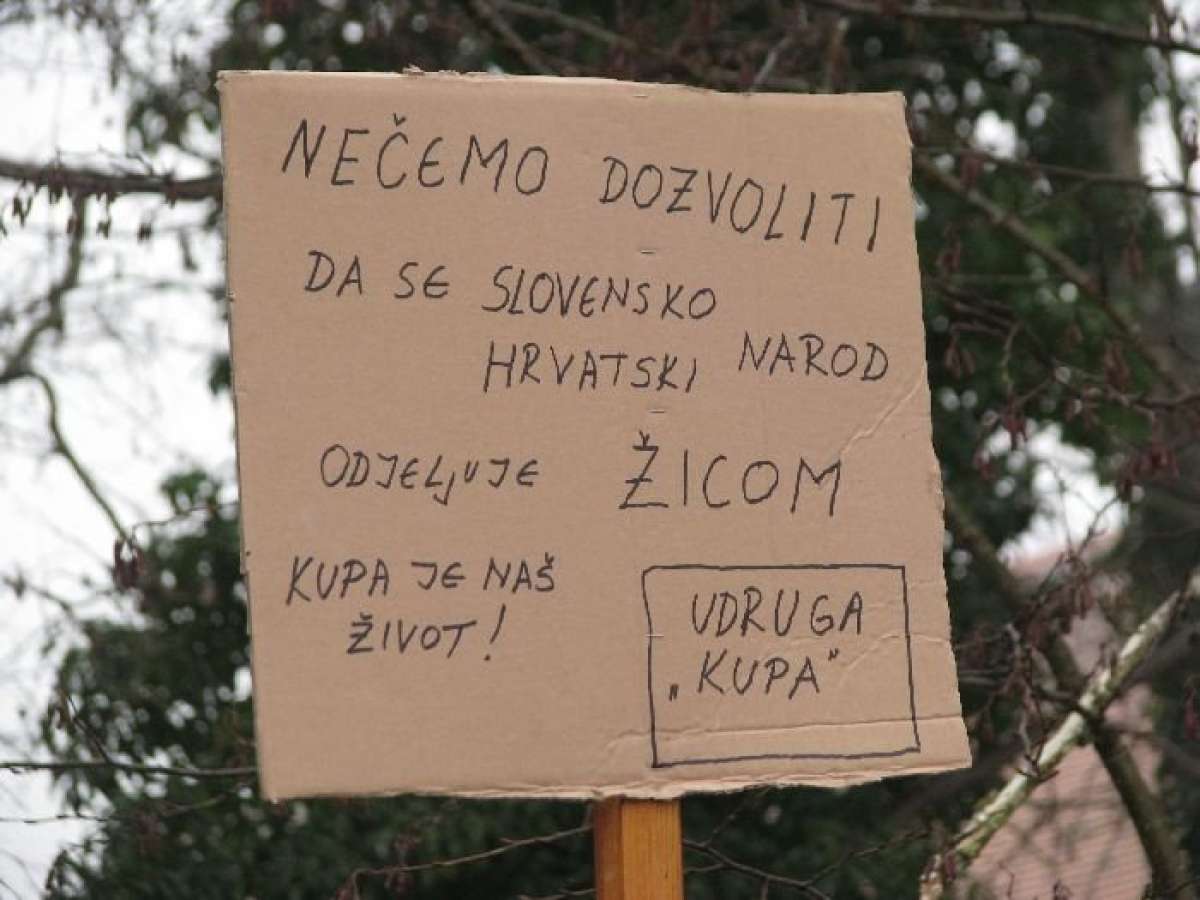 NEČEMO DOZVOLITI
DA SE SLOVENSKO
HRVATSKI NAROD
ODJELJUJE ŽICOM
KUPA JE NAŠ
ŽIVOT!
UDRUGA
„KUPA”